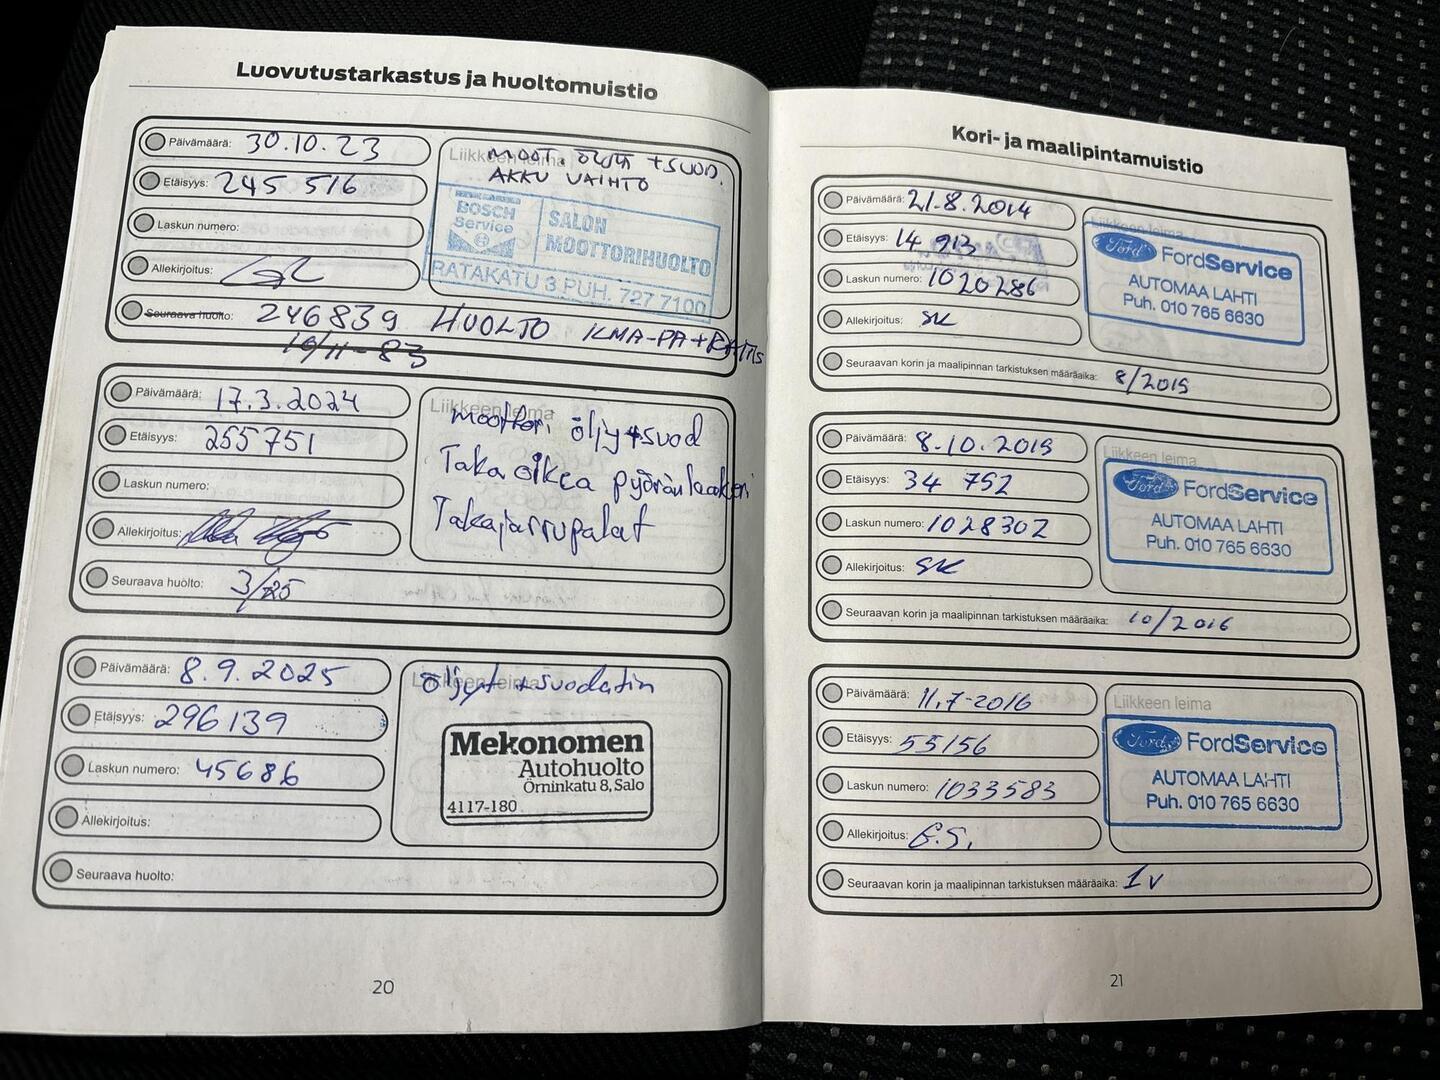 Luovutustarkastus ja huoltomuistio
Päivämäärä: 30.10.23
Etäisyys: 245 516
Laskun numero:
Allekirjoitus:
Liikkeen leima
MOOT. ÖLJYT +SUOD.
AKKU VAIHTO
BOSCH
Service
SALON
MOOTTORIHUOLTO
RATAKATU 3 PUH. 727 7100
Seuraava huolto: 246839 HUOLTO ILMA-PA+
Päivämäärä: 17.3.2024
Etäisyys: 255751
Laskun numero:
Allekirjoitus:
Liikkeen leima
moottori öljy+suod
Taka oikea pyöränlaakeri
Takajarrupalat
Seuraava huolto: 3/25
Päivämäärä: 8.9.2025
Etäisyys: 296139
Laskun numero: 45686
Allekirjoitus:
Liikkeen leima
Öljyt +suodatin
Mekonomen
Autohuolto
Örninkatu 8, Salo
4117-180
Seuraava huolto:
20
Kori- ja maalipintamuistio
Päivämäärä: 21.8.2014
Etäisyys: 14 913
Laskun numero: 1020286
Allekirjoitus: SK
Liikkeen leima
Ford FordService
AUTOMAA LAHTI
Puh. 010 765 6630
Seuraavan korin ja maalipinnan tarkistuksen määräaika: 8/2015
Päivämäärä: 8.10.2015
Etäisyys: 34 752
Laskun numero: 1028302
Allekirjoitus: SK
Liikkeen leima
Ford FordService
AUTOMAA LAHTI
Puh. 010 765 6630
Seuraavan korin ja maalipinnan tarkistuksen määräaika: 10/2016
Päivämäärä: 11.7-2016
Etäisyys: 55156
Laskun numero: 1033583
Allekirjoitus: E.S.
Liikkeen leima
Ford FordService
AUTOMAA LAHTI
Puh. 010 765 6630
Seuraavan korin ja maalipinnan tarkistuksen määräaika: 1v
21